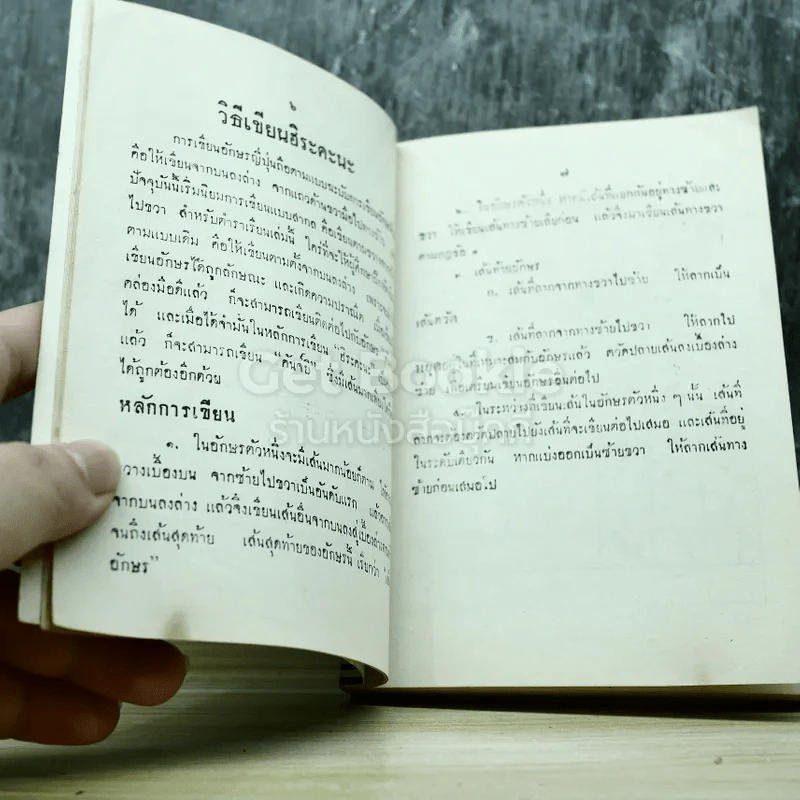 ๖
วิธีเขียนฮิระคะนะ
การเขียนอักษรญี่ปุ่นถือตามแบบฉะบับการเขียนอักษร
คือให้เขียนจากบนลงล่าง จากแถวด้านขวามือไปทางซ้าย
ปัจจุบันนี้เริ่มนิยมการเขียนแบบสากล คือเขียนตามขวางจาก
ไปขวา สำหรับตำราเรียนเล่มนี้ ใคร่ที่จะให้ผู้ศึกษา
ตามแบบเดิม คือให้เขียนตามตั้งจากบนลงล่าง เพราะ
เขียนอักษรได้ถูกลักษณะ และเกิดความปราณีต
คล่องมือดีแล้ว ก็จะสามารถเขียนติดต่อไปกับอักษร
ได้ และเมื่อได้จำมั่นในหลักการเขียน "ฮิระคะนะ"
แล้ว ก็จะสามารถเขียน "คันจิ" ซึ่งมีเส้นมาก
ได้ถูกต้องอีกด้วย
หลักการเขียน
๑. ในอักษรตัวหนึ่งจะมีเส้นมากน้อยก็ตาม ให้
ขวางเบื้องบน จากซ้ายไปขวาเป็นอันดับแรก แล้ว
จากบนลงล่าง แล้วจึงเขียนเส้นอื่นจากบนลงสู่เบื้องล่าง
จนถึงเส้นสุดท้าย เส้นสุดท้ายของอักษรนี้ เรียกว่า
อักษร"
๗
ในอักษรตัวหนึ่ง หากมีเส้นที่แยกกันอยู่ทางซ้ายและ
ขวา ให้เขียนเส้นทางซ้ายเสียก่อน แล้วจึงมาเขียนเส้นทางขวา
ตามกฎข้อ ๑
เส้นท้ายอักษร
ก. เส้นที่ลากจากทางขวาไปซ้าย ให้ลากเป็น
เส้นตวัด
ข. เส้นที่ลากจากทางซ้ายไปขวา ให้ลากไป
หยุดอยู่ในที่เหมาะสมกับอักษรแล้ว ตวัดปลายเส้นลงเบื้องล่าง
ซ้าย เพื่อเตรียมเขียนอักษรอื่นต่อไป
๔. ในระหว่างที่เขียนเส้นในอักษรตัวหนึ่ง ๆ นั้น เส้นที่
ลากจะต้องตวัดปลายไปยังเส้นที่จะเขียนต่อไปเสมอ และเส้นที่อยู่
ในระดับเดียวกัน หากแบ่งออกเป็นซ้ายขวา ให้ลากเส้นทาง
ซ้ายก่อนเสมอไป
Get Bookie
ร้านหนังสือบุ๊คกี้